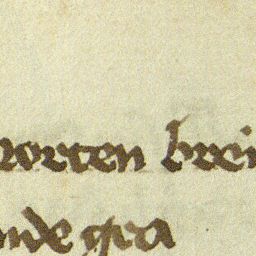 worten brei
nde gra